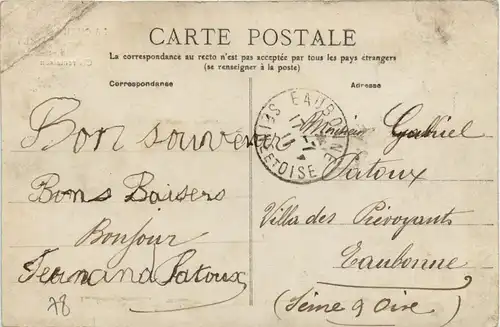 CARTE POSTALE
La correspondance au recto n'est pas acceptée par tous les pays étrangers
(se renseigner à la poste)
Correspondance
Adresse
Bon souvenir
Bons Baisers
Bonjour
Fernand Satoux
78
EAUBONNE
17-7
SEINE ET OISE
Monsieur Gabriel
Satoux
Villa des Prévoyants
Eaubonne
(Seine & Oise)